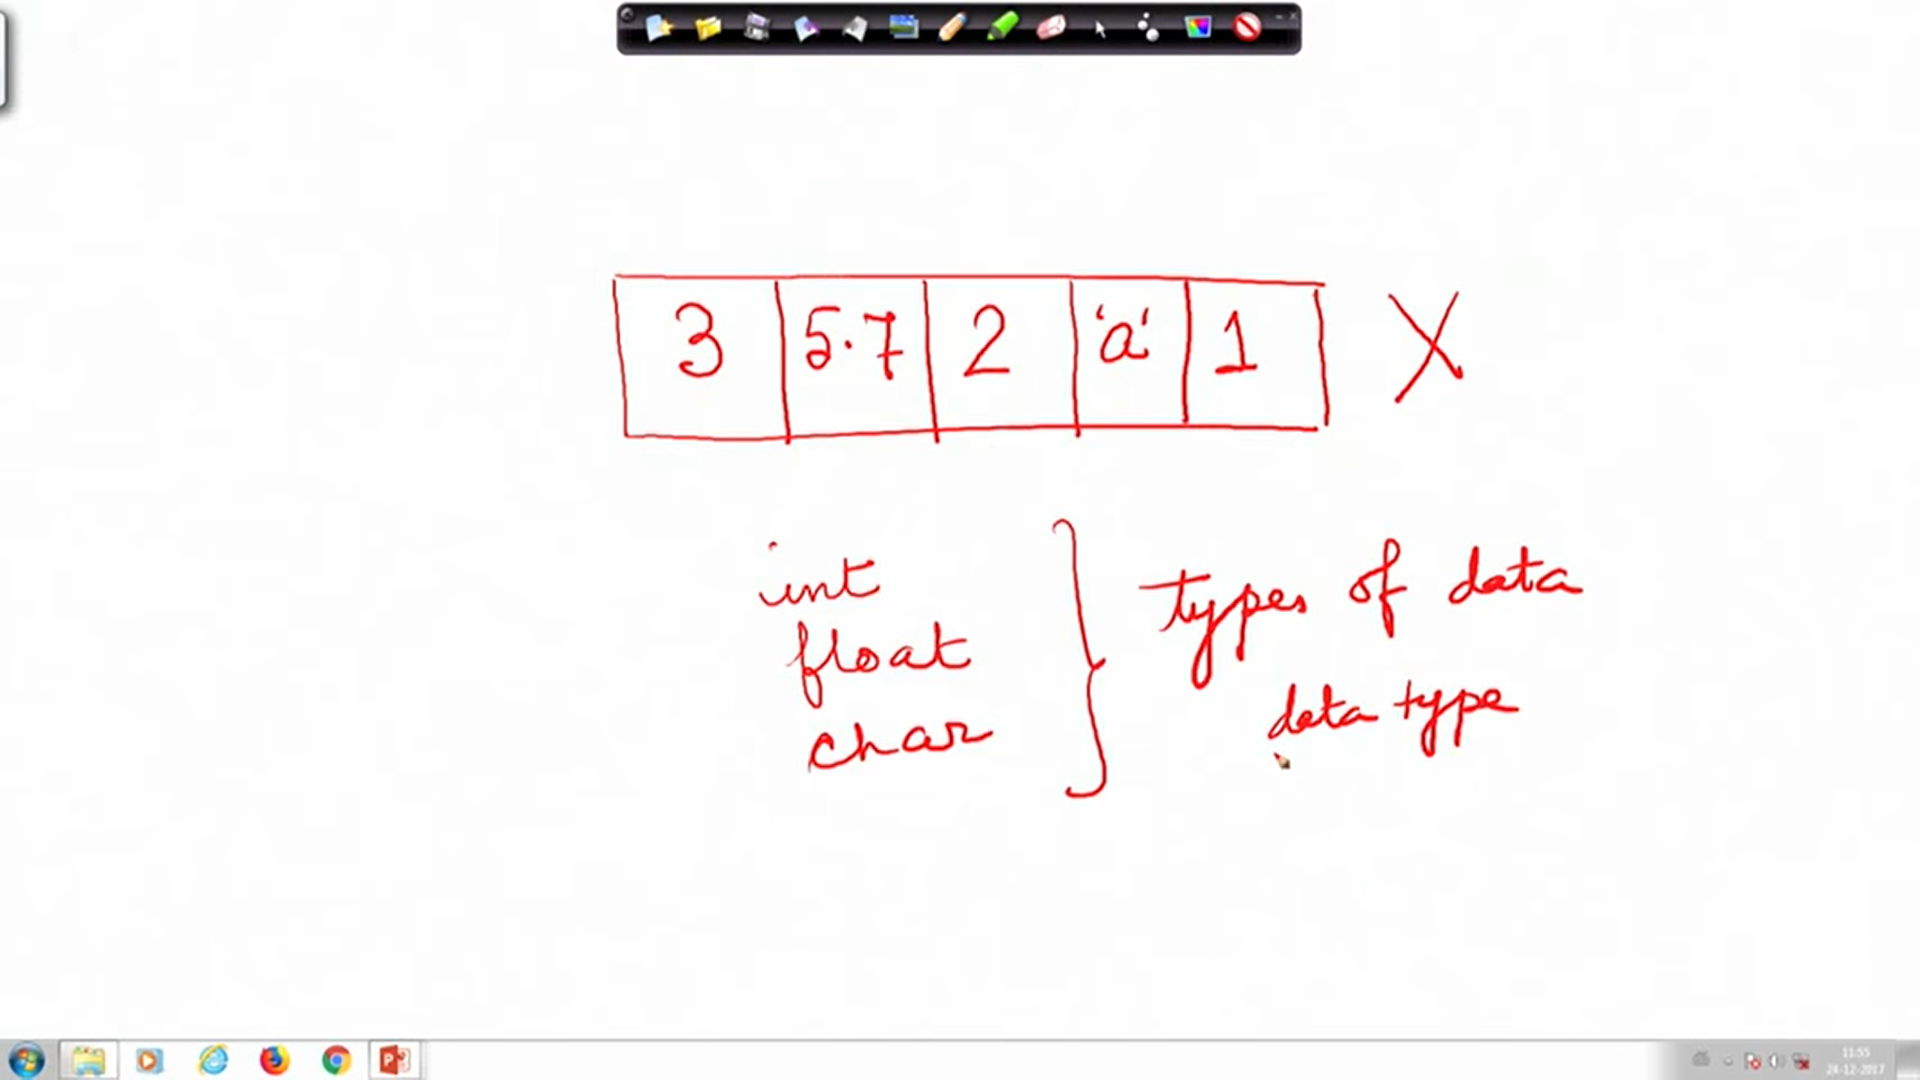 3 5.7 2 'a' 1 X
int
float
char
types of data
data type
11:55
24-12-2017